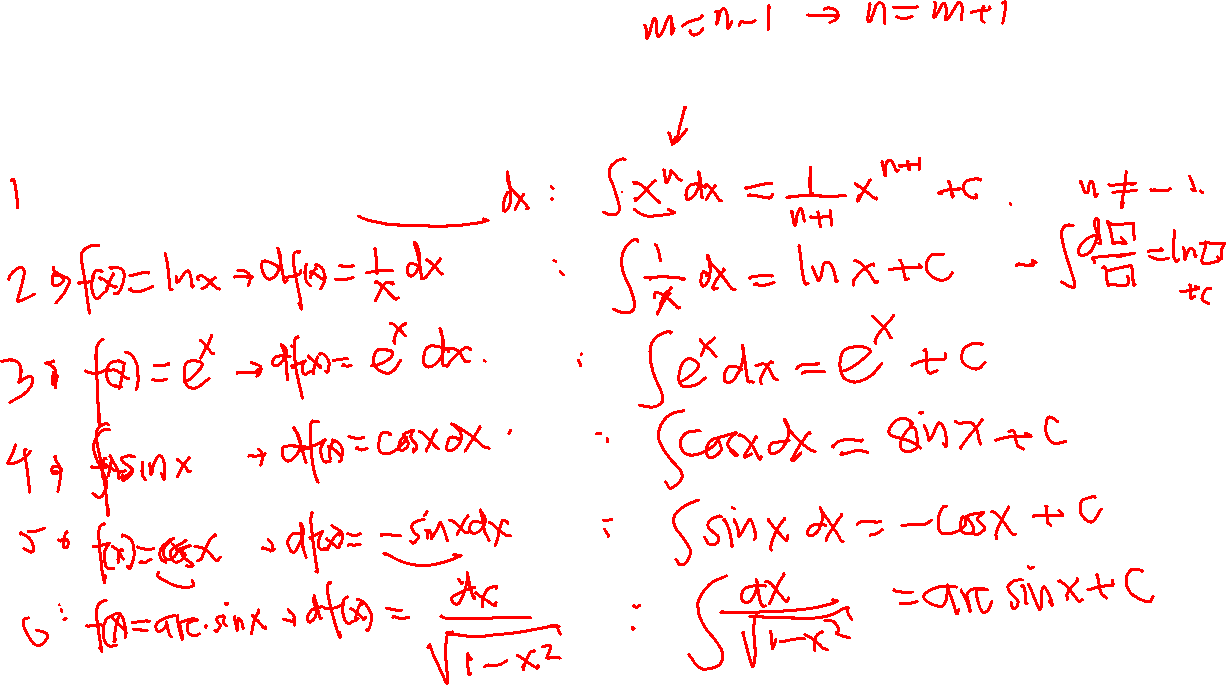 m=n-1 → n=m+1
1 dx : ∫x^n dx = 1/(n+1) x^(n+1) + c . n ≠ -1.
2 f(x)=lnx → df(x)=1/x dx : ∫1/x dx = lnx+C → ∫d□/□ = ln□ +c
3 f(x)=e^x → df(x)=e^x dx. : ∫e^x dx = e^x + C
4 sinx → df(x)=cosxdx . : ∫cosxdx = sinx+C
5 f(x)=cosx → df(x)=-sinxdx : ∫sinx dx = -cosx+C
6: f(x)=arc.sinx → df(x)=dx/√(1-x²) : ∫dx/√(1-x²) = arc sinx+C